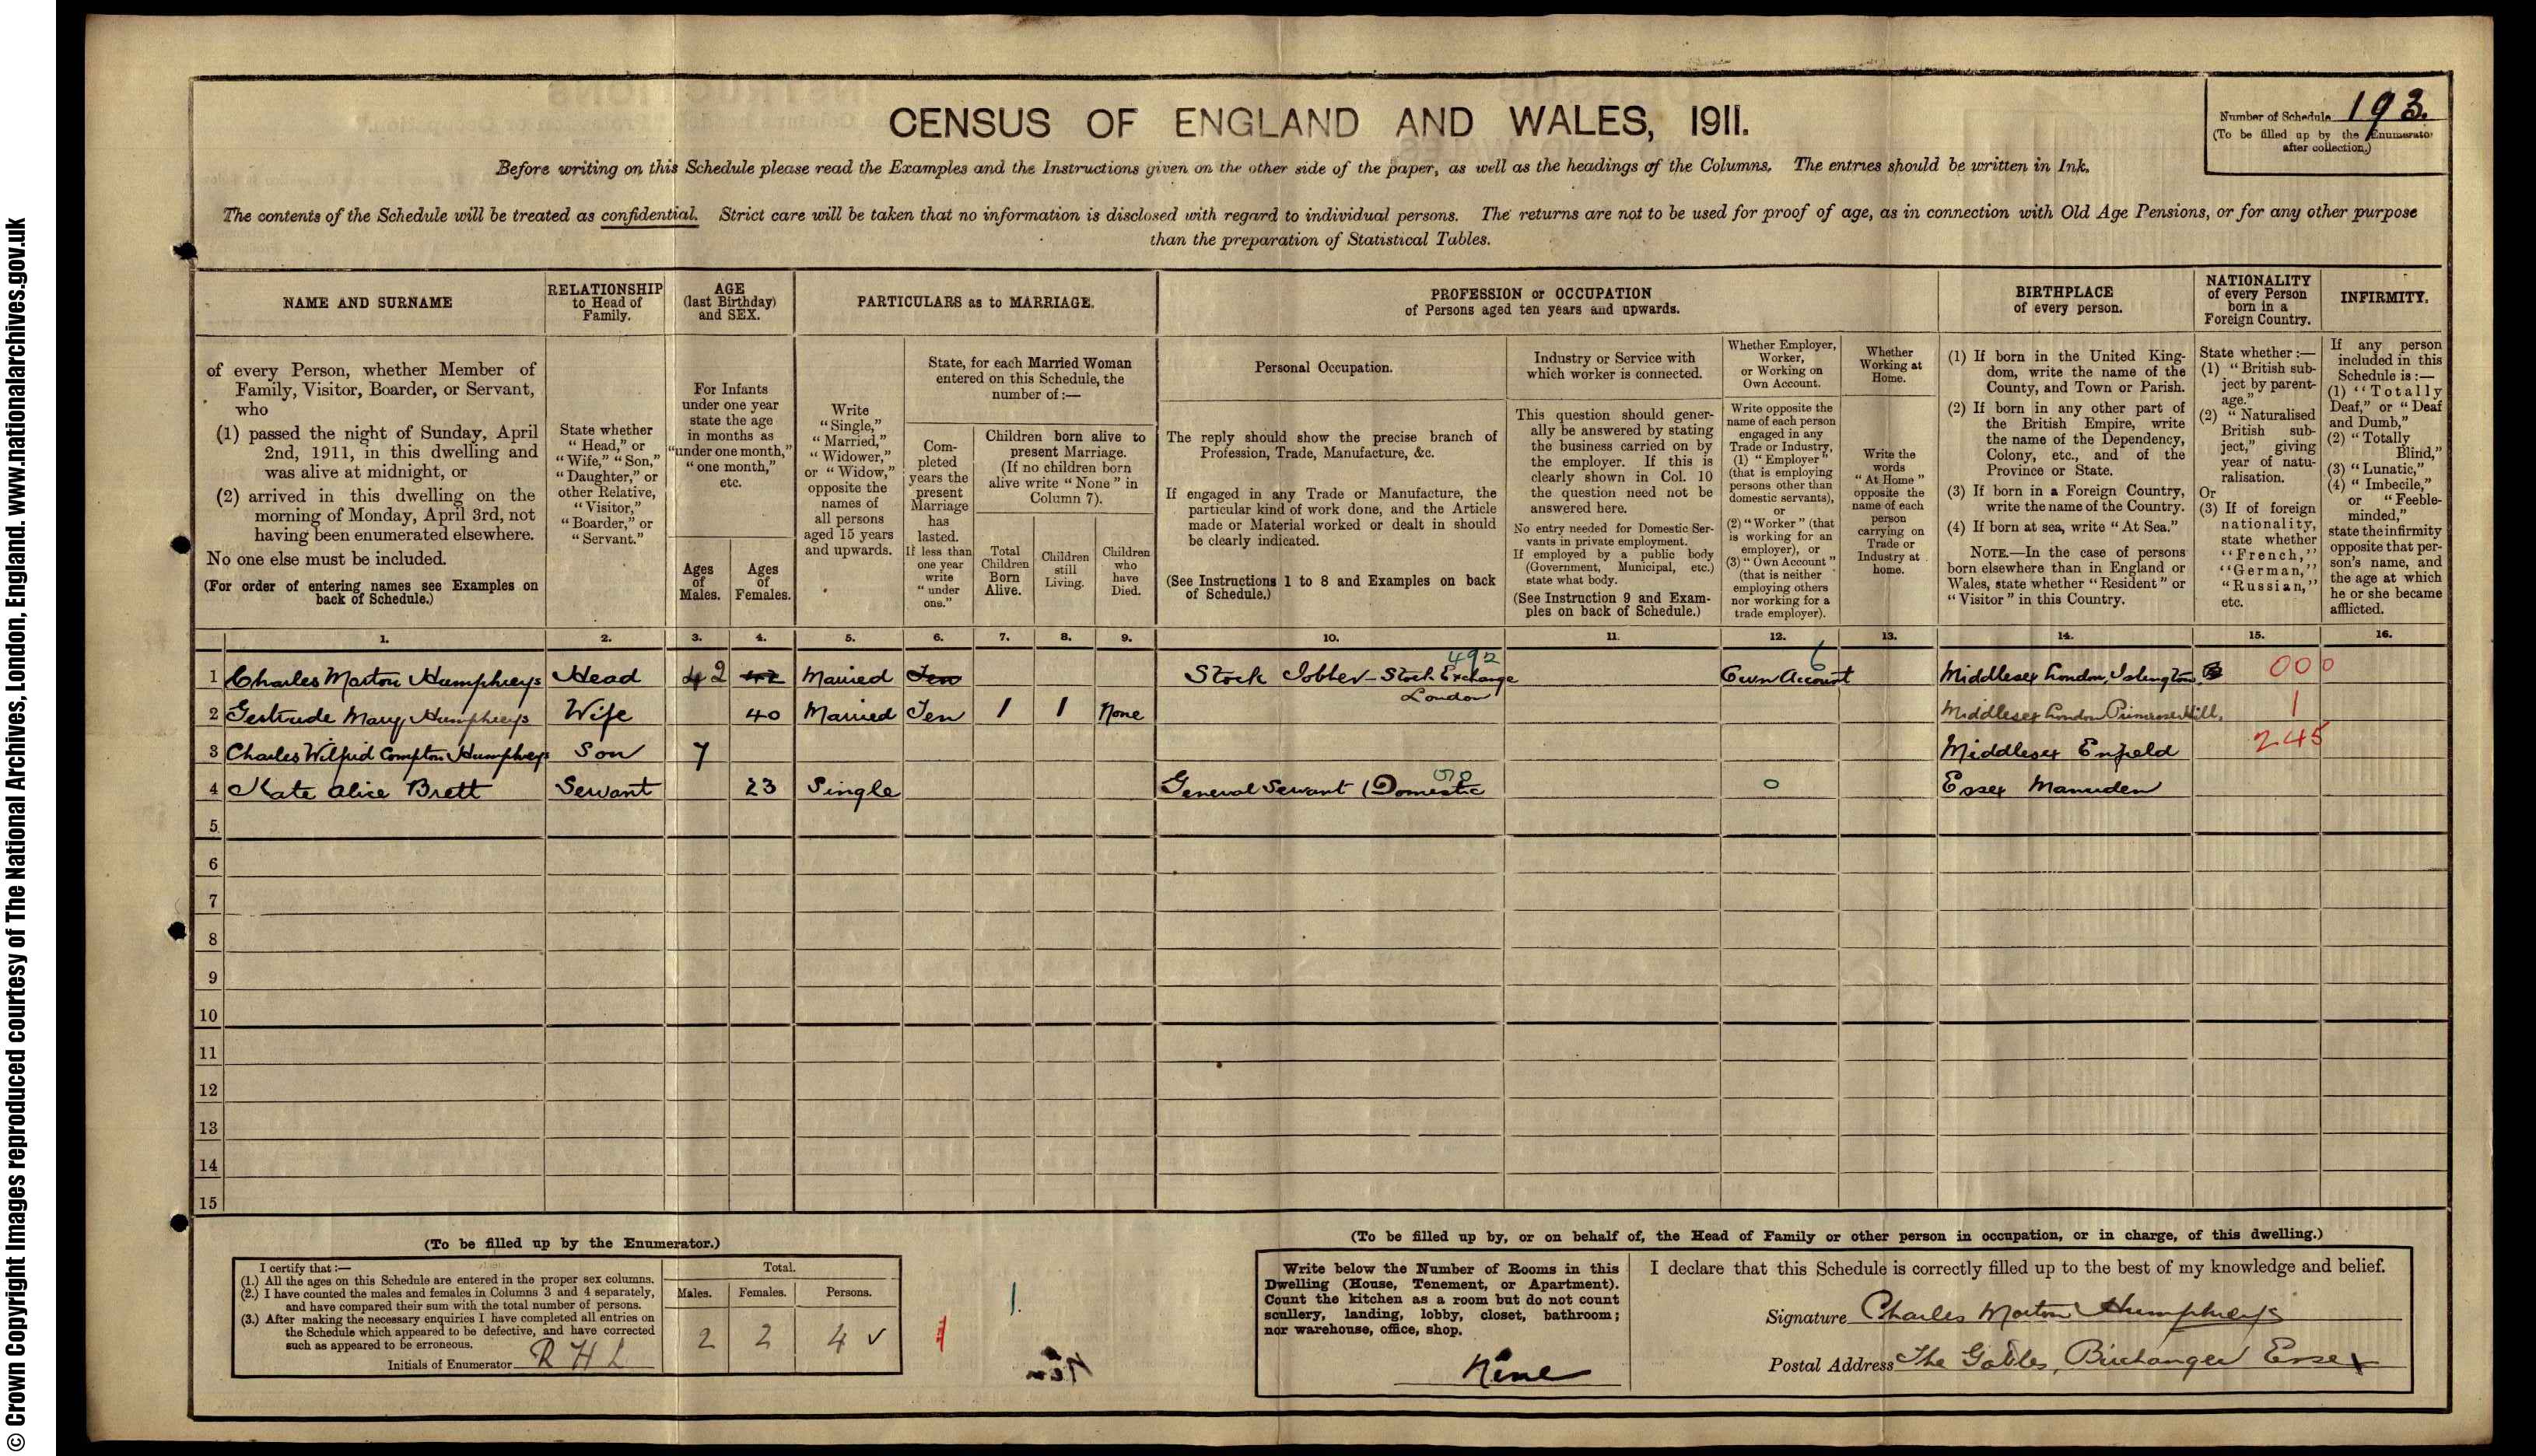 © Crown Copyright Images reproduced courtesy of The National Archives, London, England. www.nationalarchives.gov.uk
CENSUS OF ENGLAND AND WALES, 1911.
Number of Schedule 193.
(To be filled up by the Enumerator
after collection.)
Before writing on this Schedule please read the Examples and the Instructions given on the other side of the paper, as well as the headings of the Columns. The entries should be written in Ink.
The contents of the Schedule will be treated as confidential. Strict care will be taken that no information is disclosed with regard to individual persons. The returns are not to be used for proof of age, as in connection with Old Age Pensions, or for any other purpose
than the preparation of Statistical Tables.
NAME AND SURNAME
of every Person, whether Member of
Family, Visitor, Boarder, or Servant,
who
(1) passed the night of Sunday, April
2nd, 1911, in this dwelling and
was alive at midnight, or
(2) arrived in this dwelling on the
morning of Monday, April 3rd, not
having been enumerated elsewhere.
No one else must be included.
(For order of entering names see Examples on
back of Schedule.)
RELATIONSHIP
to Head of
Family.
State whether
“Head,” or
“Wife,” “Son,”
“Daughter,” or
other Relative,
“Visitor,”
“Boarder,” or
“Servant.”
AGE
(last Birthday)
and SEX.
For Infants
under one year
state the age
in months as
“under one month,”
“one month,”
etc.
Ages
of
Males.
Ages
of
Females.
PARTICULARS as to MARRIAGE.
Write
“Single,”
“Married,”
“Widower,”
or “Widow,”
opposite the
names of
all persons
aged 15 years
and upwards.
State, for each Married Woman
entered on this Schedule, the
number of :—
Com-
pleted
years the
present
Marriage
has
lasted.
If less than
one year
write
“under
one.”
Children born alive to
present Marriage.
(If no children born
alive write “None” in
Column 7).
Total
Children
Born
Alive.
Children
still
Living.
Children
who
have
Died.
PROFESSION or OCCUPATION
of Persons aged ten years and upwards.
Personal Occupation.
The reply should show the precise branch of
Profession, Trade, Manufacture, &c.
If engaged in any Trade or Manufacture, the
particular kind of work done, and the Article
made or Material worked or dealt in should
be clearly indicated.
(See Instructions 1 to 8 and Examples on back
of Schedule.)
Industry or Service with
which worker is connected.
This question should gener-
ally be answered by stating
the business carried on by
the employer. If this is
clearly shown in Col. 10
the question need not be
answered here.
No entry needed for Domestic Ser-
vants in private employment.
If employed by a public body
(Government, Municipal, etc.)
state what body.
(See Instruction 9 and Exam-
ples on back of Schedule.)
Whether Employer,
Worker,
or Working on
Own Account.
Write opposite the
name of each person
engaged in any
Trade or Industry,
(1) “Employer”
(that is employing
persons other than
domestic servants),
or
(2) “Worker” (that
is working for an
employer), or
(3) “Own Account”
(that is neither
employing others
nor working for a
trade employer).
Whether
Working at
Home.
Write the
words
“At Home”
opposite the
name of each
person
carrying on
Trade or
Industry at
home.
BIRTHPLACE
of every person.
(1) If born in the United King-
dom, write the name of the
County, and Town or Parish.
(2) If born in any other part of
the British Empire, write
the name of the Dependency,
Colony, etc., and of the
Province or State.
(3) If born in a Foreign Country,
write the name of the Country.
(4) If born at sea, write “At Sea.”
NOTE.—In the case of persons
born elsewhere than in England or
Wales, state whether “Resident” or
“Visitor” in this Country.
NATIONALITY
of every Person
born in a
Foreign Country.
State whether :—
(1) “British sub-
ject by parent-
age.”
(2) “Naturalised
British sub-
ject,” giving
year of natu-
ralisation.
Or
(3) If of foreign
nationality,
state whether
“French,”
“German,”
“Russian,”
etc.
INFIRMITY.
If any person
included in this
Schedule is :—
(1) “Totally
Deaf,” or “Deaf
and Dumb,”
(2) “Totally
Blind,”
(3) “Lunatic,”
(4) “Imbecile,”
or “Feeble-
minded,”
state the infirmity
opposite that per-
son’s name, and
the age at which
he or she became
afflicted.
1. 2. 3. 4. 5. 6. 7. 8. 9. 10. 11. 12. 13. 14. 15. 16.
492 6
1 Charles Morton Humphreys Head 42 42 Married Ten Stock Jobber - Stock Exchange Own Account Middlesex London, Islington 000
London
2 Gertrude Mary Humphreys Wife 40 Married Ten 1 1 None Middlesex London Primrose Hill, 1
3 Charles Wilfrid Compton Humphreys Son 7 Middlesex Enfield 245
4 Kate Alice Brett Servant 23 Single General Servant (Domestic 0 Essex Manuden
5
6
7
8
9
10
11
12
13
14
15
(To be filled up by the Enumerator.)
I certify that :—
(1.) All the ages on this Schedule are entered in the proper sex columns.
(2.) I have counted the males and females in Columns 3 and 4 separately,
and have compared their sum with the total number of persons.
(3.) After making the necessary enquiries I have completed all entries on
the Schedule which appeared to be defective, and have corrected
such as appeared to be erroneous.
Initials of Enumerator R H L
Total.
Males. Females. Persons.
2 2 4 ✓
1
1.
(To be filled up by, or on behalf of, the Head of Family or other person in occupation, or in charge, of this dwelling.)
Write below the Number of Rooms in this
Dwelling (House, Tenement, or Apartment).
Count the kitchen as a room but do not count
scullery, landing, lobby, closet, bathroom;
nor warehouse, office, shop.
Nine
I declare that this Schedule is correctly filled up to the best of my knowledge and belief.
Signature Charles Morton Humphreys
Postal Address The Gables, Birchanger Essex